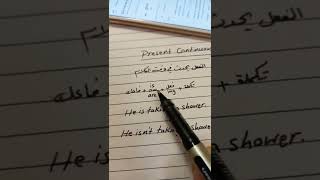 Present Continuou
الفعل يحدث في وقت الكلام
فاعل + is am are + فعل ing + تكملة
He is taking a shower.
He isn't taking shower